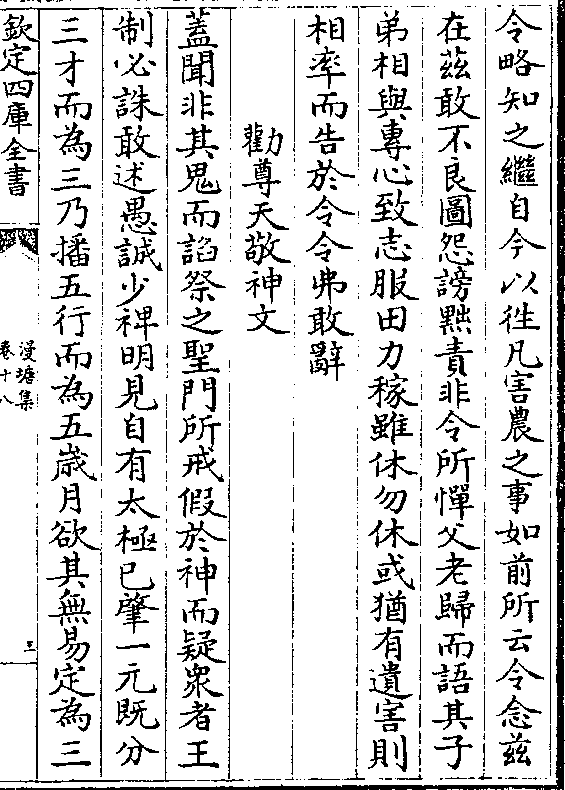 令略知之繼自今以徃凡害農之事如前所云令念兹
在茲敢不良圖怨謗黙責非令所憚父老歸而語其子
弟相與專心致志服田力穡雖休勿休或猶有遺害則
相率而告於令令弗敢辭
勸尊天敬神文
蓋聞非其鬼而諂祭之聖門所戒假於神而疑衆者王
制必誅敢述愚誠少裨明見自有太極已肇一元既分
三才而為三乃播五行而為五歳月欲其無易定為三
欽定四庫全書
漫塘集
卷十八
三